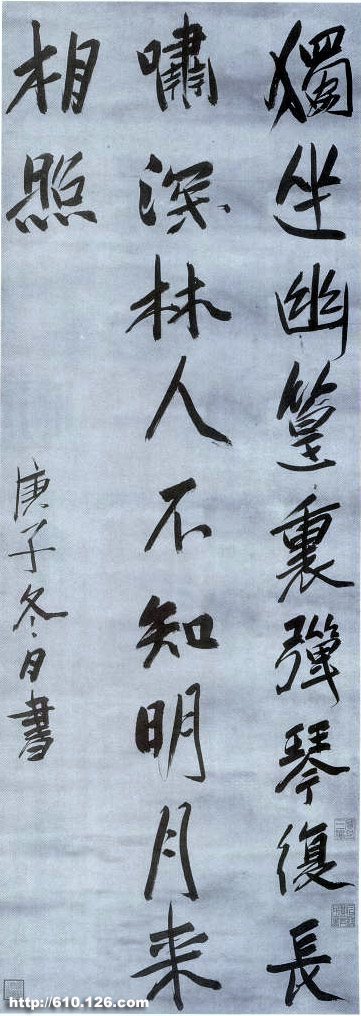 獨坐幽篁裏彈琴復長
嘯深林人不知明月来
相照
庚子冬月書
http://610.126.com/